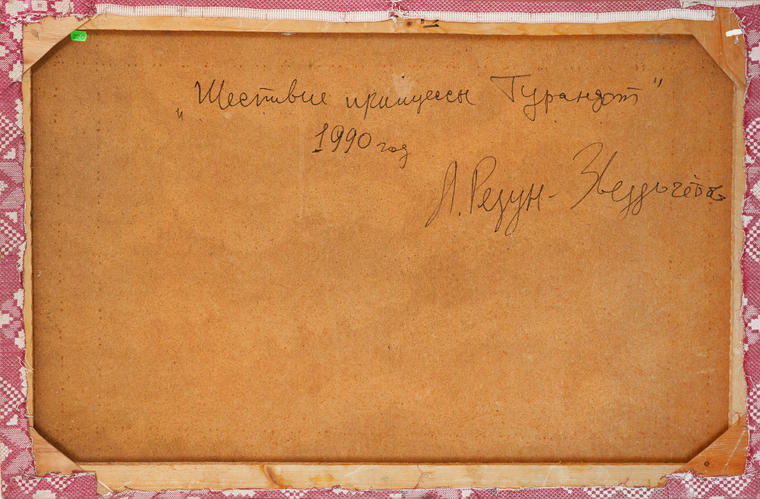 „Шествие принцессы Турандот"
1990 год
Л. Резун-Звездочётова